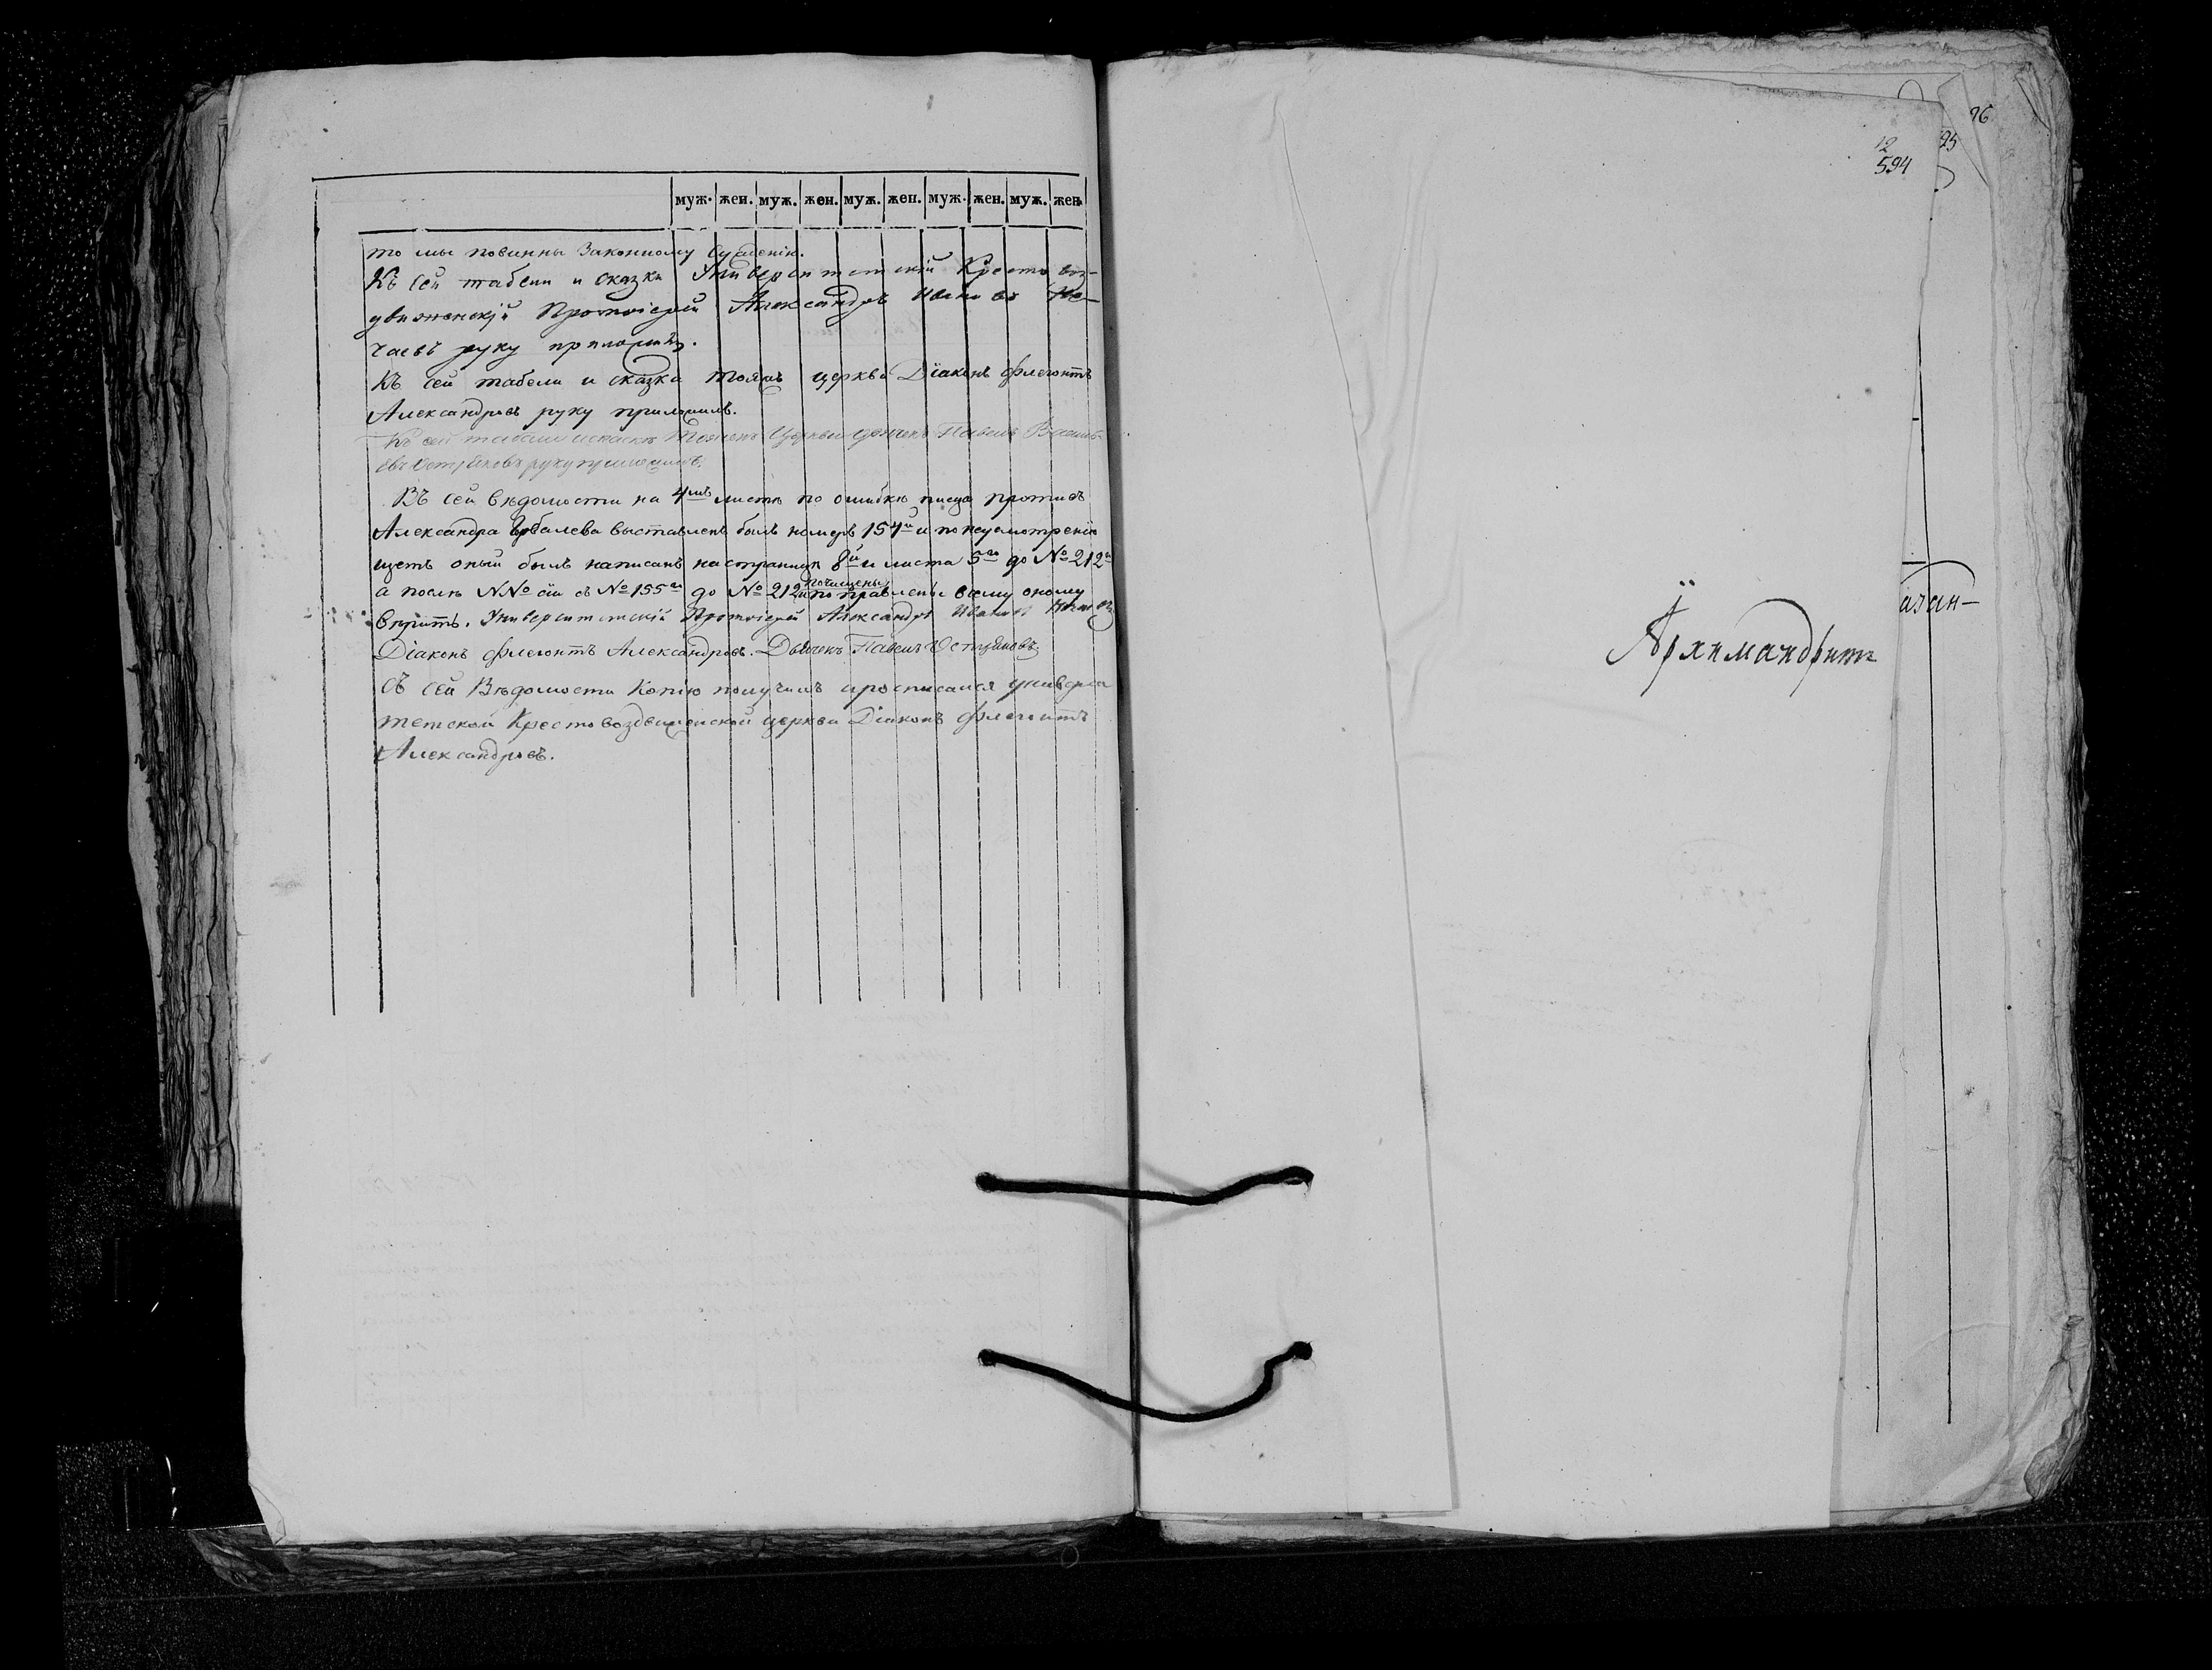 муж. жен. муж. жен. муж. жен. муж. жен. муж. жен.
то мы повинны Законному Сужденію.
Къ сей табели и сказки Университетскій Кресто воз-
движенскій Протоіерей Александръ Ивановъ Не-
чаевъ руку приложилъ.
Къ сей табели и сказки тояжъ церкви Діаконъ Флегонтъ
Александровъ руку приложилъ.
Къ сей табели и скаски Тоежъ Церкви дьячекъ Павелъ Василь-
евъ руку приложилъ.
Въ сей вѣдомости на 4мъ листѣ по ошибкѣ писца противъ
Александра выставленъ былъ номеръ 154й и по неусмотренію
щетъ оный былъ написанъ на страницы 8й и листа 5го до №212го
а послѣ №№ сіи съ №155го до №212й почищены поправлены всему оному
вѣрить. Университетскій Протоіерей Александръ Ивановъ Нечаевъ
Діаконъ Флегонтъ Александровъ. Дьячекъ Павелъ
Съ сей Вѣдомости Копію получилъ и росписался универси
тетской Крестовоздвиженской церкви Діаконъ Флегонтъ
Александровъ.
96
25
12
594
азан-
Архимандритъ